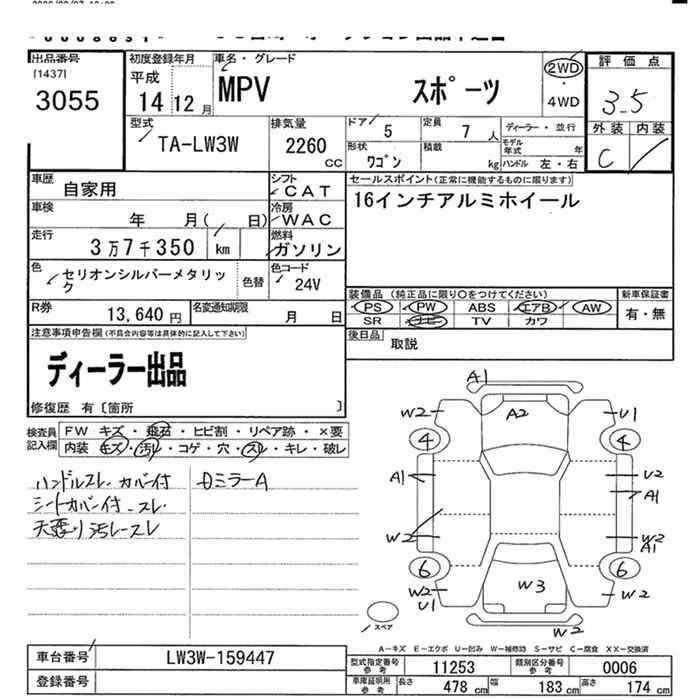 出品番号
[1437]
3055
初度登録年月
平成
14 12 月
車名・グレード
MPV スポーツ
2WD
・
4WD
評価点
3.5
外装 内装
C
型式
TA-LW3W
排気量
2260 cc
ドア 5
定員 7 人
ディーラー・並行
形状 ワゴン
積載 kg
モデル年式 年
ハンドル 左・右
車歴
自家用
シフト
CAT
セールスポイント(正常に機能するものに限ります)
16インチアルミホイール
車検
年 月( 日)
冷房
WAC
走行
3万7千350 km
燃料
ガソリン
色
セリオンシルバーメタリック
色替
色コード
24V
R券
13,640 円
名変通知期限
月 日
装備品 (純正品に限り○をつけてください)
PS PW ABS エアB AW
SR ナビ TV カワ
新車保証書
有・無
後日品
取説
注意事項申告欄(不具合内容等は具体的に記入して下さい)
ディーラー出品
修復歴 有〔箇所 〕
検査員記入欄
FW キズ・飛石・ヒビ割・リペア跡・×要
内装 キズ・汚レ・コゲ・穴・スレ・キレ・破レ
ハンドルスレ.カバー付
シートカバー付.スレ.
天張り汚レースレ
ミラーA
A1
W2 A2 U1
4 4
A1 U2
A1
W2 W2
A1
6 6
W2 W3 W2
U1
W2
スペア
A-キズ E-エクボ U-凹み W-補修跡 S-サビ C-腐食 XX-交換済
車台番号
LW3W-159447
登録番号
型式指定番号参考
11253
類別区分番号参考
0006
車庫証明用参考
長さ 478 cm
幅 183 cm
高さ 174 cm